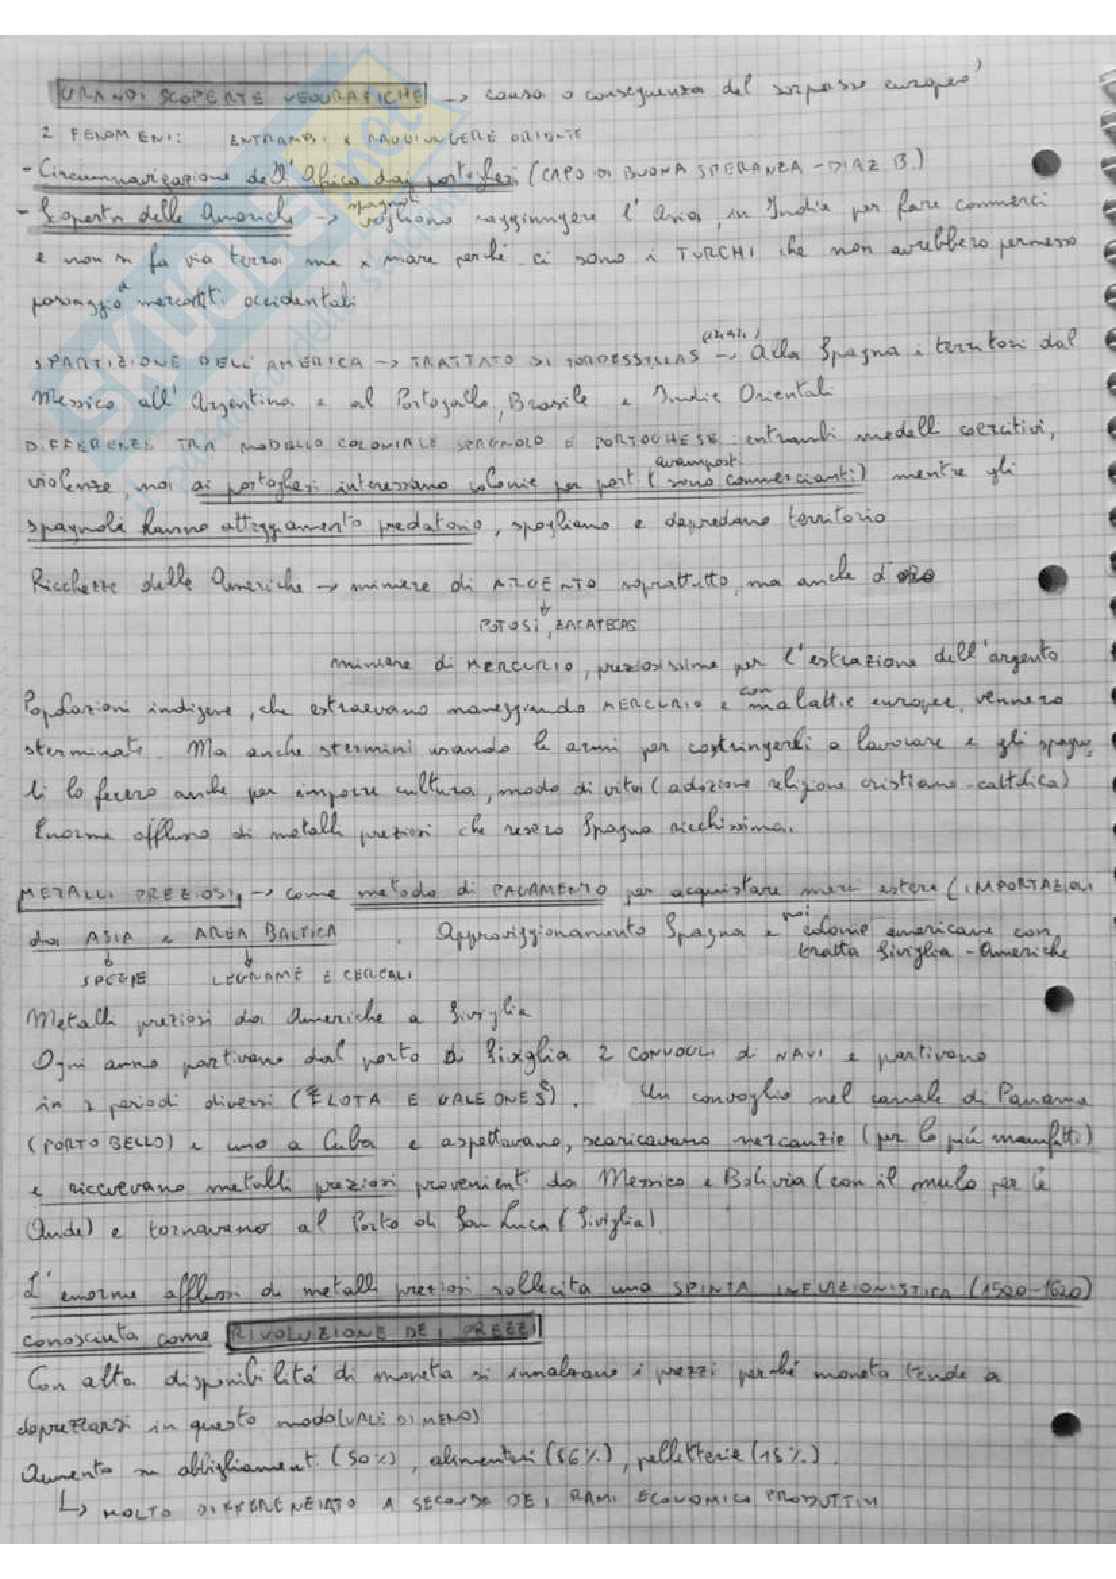 GRANDI SCOPERTE GEOGRAFICHE → causa o conseguenza del sorpasso europeo?
2 FENOMENI: ENTRAMBI X RAGGIUNGERE ORIENTE
- Circumnavigazione dell'Africa dai portoghesi (CAPO DI BUONA SPERANZA - DIAZ B.)
- Scoperta delle Americhe → spagnoli vogliono raggiungere l'Asia, in India per fare commerci
e non si fa via terra ma x mare perché ci sono i TURCHI che non avrebbero permesso
passaggio a mercanti occidentali
SPARTIZIONE DELL'AMERICA → TRATTATO DI TORDESILLAS (1494) → Alla Spagna i territori dal
Messico all'Argentina e al Portogallo, Brasile e Indie Orientali
DIFFERENZE TRA MODELLO COLONIALE SPAGNOLO E PORTOGHESE: entrambi modelli coercitivi,
violenze, ma ai portoghesi interessano colonie per porti avamposti (sono commercianti) mentre gli
spagnoli hanno atteggiamento predatorio, spogliano e depredano territorio
Ricchezze delle Americhe → miniere di ARGENTO soprattutto, ma anche d'oro
↓
POTOSI, ZACATECAS
miniere di MERCURIO, preziosissime per l'estrazione dell'argento
Popolazioni indigene, che estraevano maneggiando MERCURIO e con malattie europee, vennero
sterminate. Ma anche stermini usando le armi per costringerli a lavorare e gli spagno
li lo fecero anche per imporre cultura, modo di vita (adozione religione cristiano-cattolica)
Enorme afflusso di metalli preziosi che resero Spagna ricchissima.
METALLI PREZIOSI → come metodo di PAGAMENTO per acquistare merci estere (IMPORTAZIONI
da ASIA e AREA BALTICA. Approvvigionamento Spagna e poi colonie americane con
tratta Siviglia - Americhe
↓ ↓
SPEZIE LEGNAME E CEREALI
Metalli preziosi da Americhe a Siviglia
Ogni anno partivano dal porto di Siviglia 2 CONVOGLI di NAVI e partivano
in 2 periodi diversi (FLOTA E GALEONES). Un convoglio nel canale di Panama
(PORTO BELLO) e uno a Cuba e aspettavano, scaricavano mercanzie (per lo più manufatti)
e ricevevano metalli preziosi provenienti da Messico e Bolivia (con il mulo per le
Ande) e tornavano al Porto di San Luca (Siviglia)
L'enorme afflusso di metalli preziosi sollecita una SPINTA INFLAZIONISTICA (1500-1620)
conosciuta come RIVOLUZIONE DEI PREZZI
Con alta disponibilità di moneta si innalzano i prezzi perché moneta tende a
deprezzarsi in questo modo (VALE DI MENO)
Aumento su abbigliamenti (50%), alimentari (86%), pelletterie (15%).
↳ MOLTO DIFFERENZIATO A SECONDA DEI RAMI ECONOMICO PRODUTTIVI